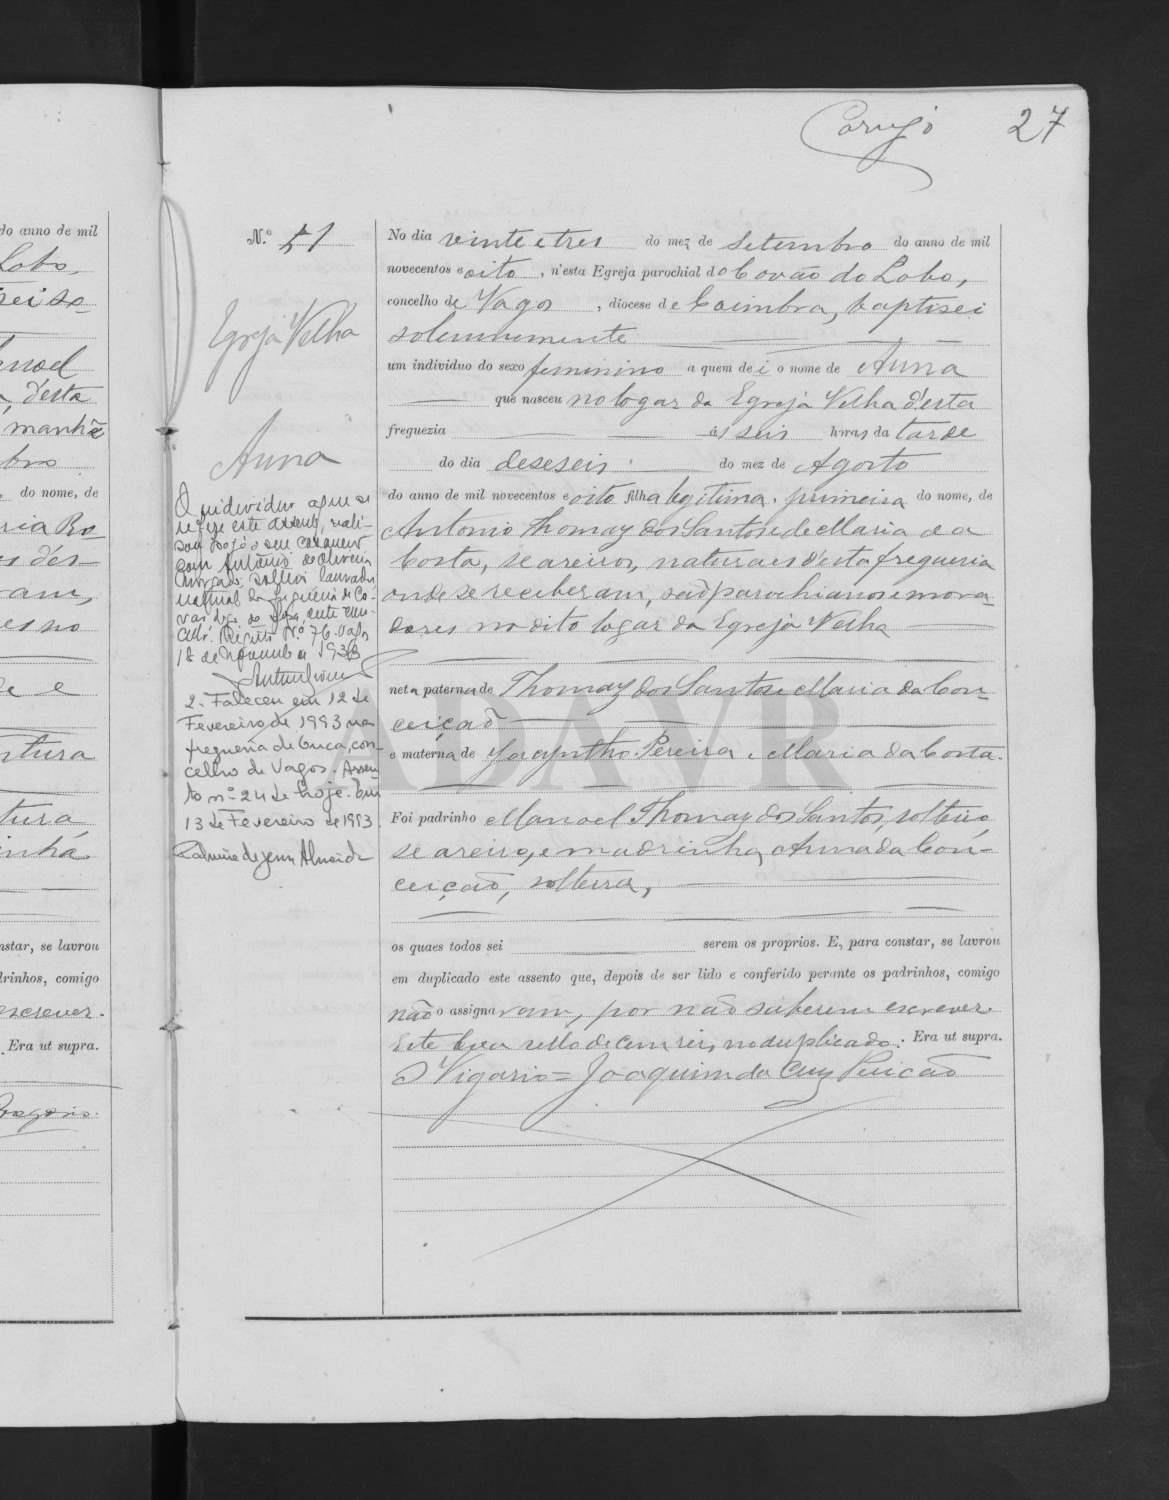 27
do anno de mil
Lobo,
d'esta
manhã
do nome, de
ntura
tura
nstar, se lavrou
drinhos, comigo
escrever.
. Era ut supra.
N.º 51
Egreja Velha
Anna
O individuo a que se
refere este assento, reali-
sou hoje o seu casamento
com António de Oliveira
solteiro lavrador
natural da freguesia de Co-
vão do Lobo
Registo N.º 76. Vagos
18 de Novembro 193
2. Faleceu em 12 de
Fevereiro de 1993 na
freguesia de Ouca, con-
celho de Vagos. Assen-
to nº 24 de hoje. Em
13 de Fevereiro de 1993.
Almeida
No dia vinte e tres do mez de Setembro do anno de mil
novecentos e oito, n'esta Egreja parochial do Covão do Lobo,
concelho de Vagos, diocese de Coimbra, baptisei
solemnemente
um individuo do sexo feminino a quem dei o nome de Anna
que nasceu no logar da Egreja Velha d'esta
freguezia ás seis horas da tarde
do dia deseseis do mez de Agosto
do anno de mil novecentos e oito filha legitima, primeira do nome, de
Antonio Thomaz dos Santos e de Maria da
Costa, seareiros, naturaes d'esta freguesia
onde se receberam, são parochianos e mora-
dores no dito logar da Egreja Velha
neta paterna de Thomaz dos Santos e Maria da Con-
ceição
e materna de Jacyntho Pereira e Maria da Costa.
ADAVR
Foi padrinho Manoel Thomaz dos Santos, solteiro,
seareiro, e madrinha, Anna da Con-
ceição, solteira,
os quaes todos sei serem os proprios. E, para constar, se lavrou
em duplicado este assento que, depois de ser lido e conferido perante os padrinhos, comigo
não o assignaram, por não saberem escrever.
Este leva sello de cem reis, no duplicado. Era ut supra.
O Vigario = Joaquim da Cruz